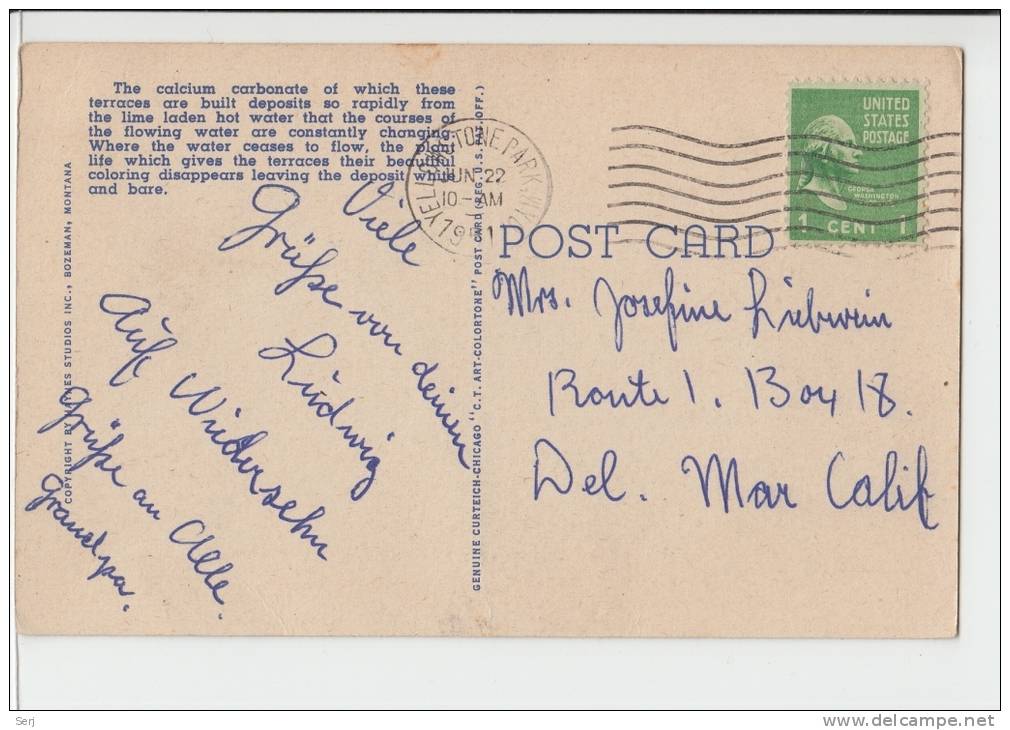 The calcium carbonate of which these
terraces are built deposits so rapidly from
the lime laden hot water that the courses of
the flowing water are constantly changing.
Where the water ceases to flow, the plant
life which gives the terraces their beautiful
coloring disappears leaving the deposit white
and bare.
COPYRIGHT BY HAYNES STUDIOS INC., BOZEMAN, MONTANA
Viele
Grüße von deinen
Ludwig
Auf Wiedersehn
Grüße an Alle.
Grandpa.
GENUINE CURTEICH-CHICAGO "C.T. ART-COLORTONE" POST CARD (REG. U.S. PAT. OFF.)
YELLOWSTONE PARK, WYO.
JUN 22
10-AM
1951
UNITED
STATES
POSTAGE
GEORGE
WASHINGTON
1 CENT 1
POST CARD
Mrs. Josefine Liebwein
Route 1. Box 18.
Del. Mar Calif
Serj
www.delcampe.net